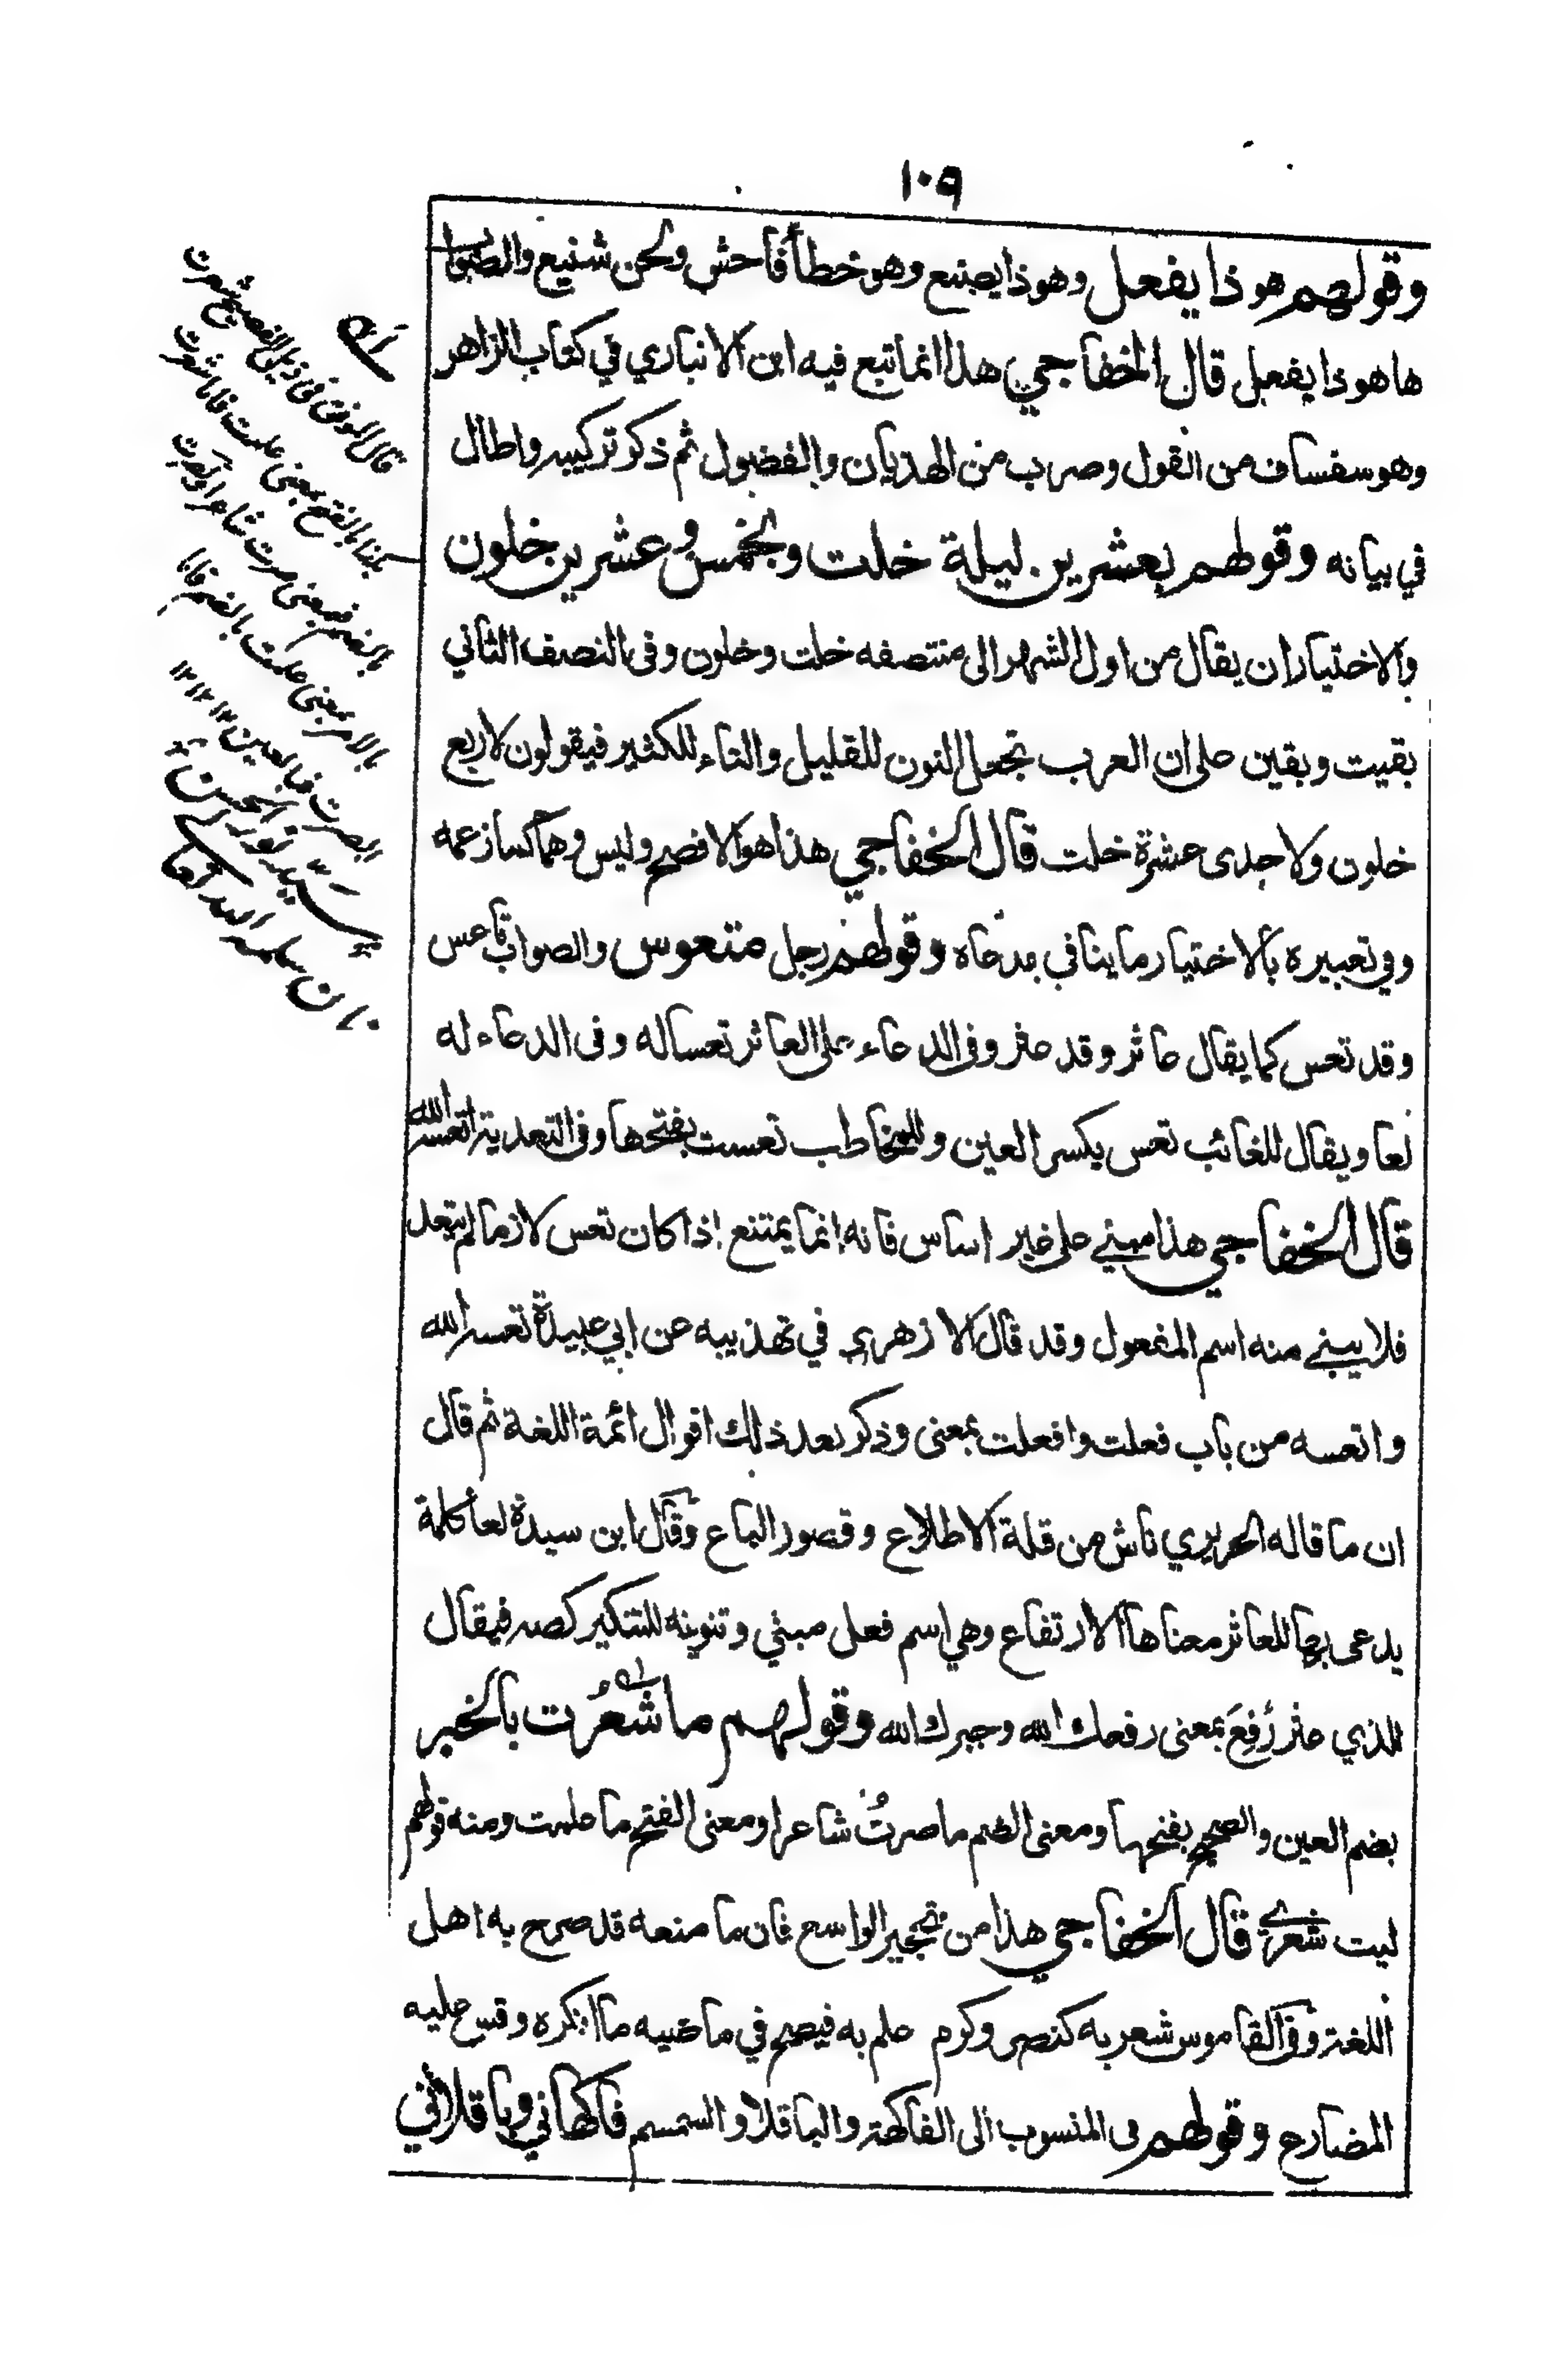 ١٠٩
وقولهم هو ذا يفعل وهو ذا يصنع وهو خطأ فاحش ولحن شنيع والصواب
ها هو ذا يفعل قال الخفاجي هذا انما تبع فيه ابن الانباري في كتاب الزاهر
وهو سفساف من القول وضرب من الهذيان والفضول ثم ذكر تركيبه واطال
في بيانه وقولهم بعشرين ليلة خلت ولخمس وعشرين خلون
والاختيار ان يقال من اول الشهر الى منتصفه خلت وخلون وفى النصف الثاني
بقيت وبقين على ان العرب تجعل النون للقليل والتاء للكثير فيقولون لاربع
خلون ولاحدى عشرة خلت قال الخفاجي هذا هو الافصح وليس وهما كما زعمه
وفي تعبيره بالاختيار ما ينافي مدعاه وقولهم رجل متعوس والصواب تاعس
وقد تعس كما يقال عاثر وقد عثر وفى الدعاء على العاثر تعسا له وفى الدعاء له
لعا ويقال للغائب تعس بكسر العين وللمخاطب تعست بفتحها وفى التعدية اتعسه الله
قال الخفاجي هذا مبني على غير اساس فانه انما يمتنع اذا كان تعس لازما لم يتعد
فلا يبنى منه اسم المفعول وقد قال الازهري في تهذيبه عن ابي عبيدة تعسه الله
واتعسه من باب فعلت وافعلت بمعنى وذكر بعد ذلك اقوال ائمة اللغة ثم قال
ان ما قاله الحريري ناش من قلة الاطلاع وقصور الباع وقال ابن سيدة لعا كلمة
يدعى بها للعاثر معناها الارتفاع وهي اسم فعل مبني وتنوينه للتنكير كصه فيقال
للذي عثر رُفِعَ بمعنى رفعك الله وجبرك الله وقولهم ما شعُرت بالخبر
بضم العين والصحيح بفتحها ومعنى الضم ما صرتُ شاعرا ومعنى الفتح ما علمت ومنه قولهم
ليت شعري قال الخفاجي هذا من تحجير الواسع فان ما منعه قد صرح به اهل
اللغة وفى القاموس شعر به كنصر وكرم علم به فيصح في ماضيه ما انكره وقس عليه
المضارع وقولهم فى المنسوب الى الفاكهة والباقلا والسمسم فاكهاني وباقلاني
قال الموفق فى ذيل الفصيح شعرت
بكذا بالفتح بمعنى علمت فاما شعرت
بالضم فبمعنى صرت شاعرا
سيد نور الحسن